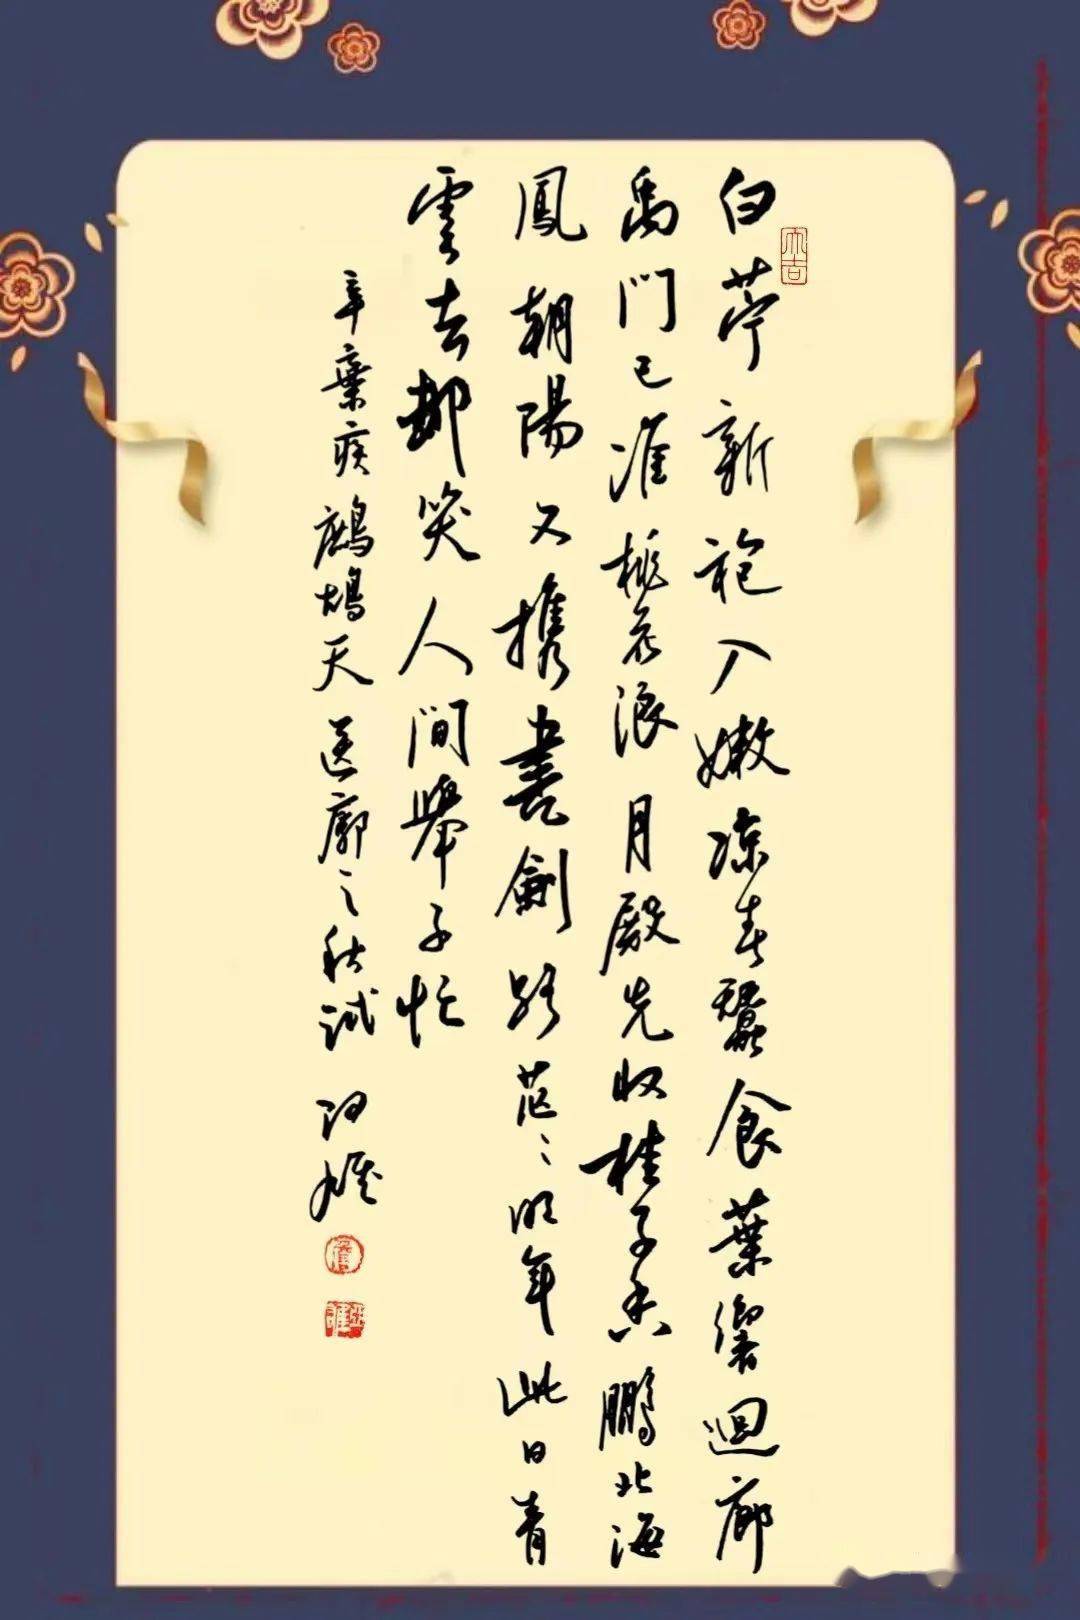 白苧新袍入嫩涼春蠶食葉響迴廊
禹門已准桃花浪月殿先收桂子香鵬北海
鳳朝陽又携書劍路茫〻明年此日青
雲去却笑人間舉子忙
辛棄疾鷓鴣天送廓之秋試
大吉